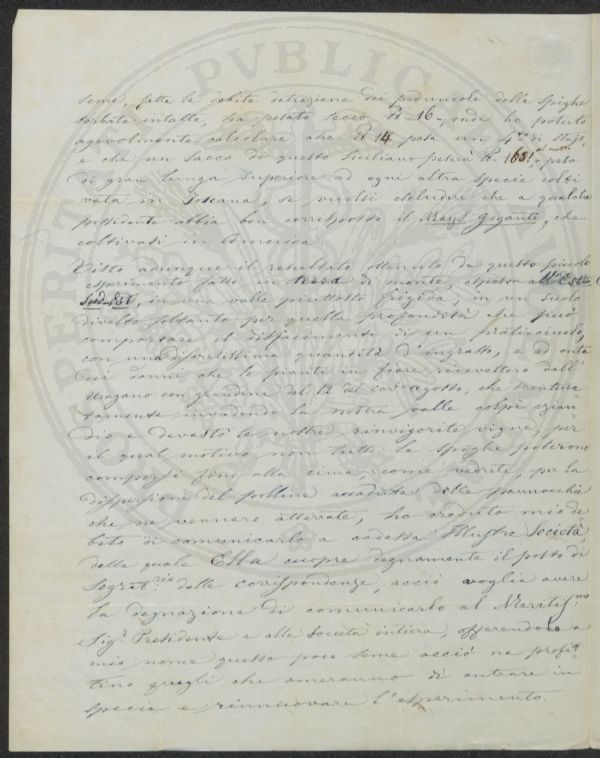 seme, fatte le debite detrazione dei peduncoli delle spighe
serbate intatte, ha pesato secco ℔ 16 - onde ho potuto
agevolmente calcolare che ℔ 14 pesa un 4.to di Stajo,
e che un sacco di questo Siciliano peserà ℔ 168. peso
di gran lunga superiore ad ogni altra specie colti
vata in Toscana, se vuolsi escludere che a qualche
possidente abbia ben corrisposto il Mays Gigante, che
coltivasi in America.
Visto adunque il resultato ottenuto da questo piccolo
esperimento fatto in terra di monte, esposta all'Est
Sud-Est, in una valle piuttosto frigida, in un suolo
divelto soltanto per quella profondità che può
comportare il disfacimento di un praticciuolo,
con una discretissima quantità d'ingrasso, e ad onta
dei danni, che le piante in fiore ricevettero dall'
Uragano con grandine del 12 del cor. Agosto, che
invadendo la nostra valle colpì ezian
dio e devastò le nostre rinvigorite vigne, per
il qual motivo non tutte le spighe poterono
comporsi fino alla cima, come vedrete, per la
dispersione del polline accaduta dalle pannocchie
che ne vennero atterrate, ho creduto mio de
bito di comunicarlo a codesta Illustre Società
della quale Ella cuopre degnamente il posto di
Segret.rio delle corrispondenze, acciò voglia avere
la degnazione di comunicarlo al Meritiss.mo
Sig.r Presidente e alla Società intiera, offerendo a
mio nome questo poco seme acciò ne profit
tino quegli che ameranno di entrare in
specie e rinnuovare l'esperimento.
PVBLICA